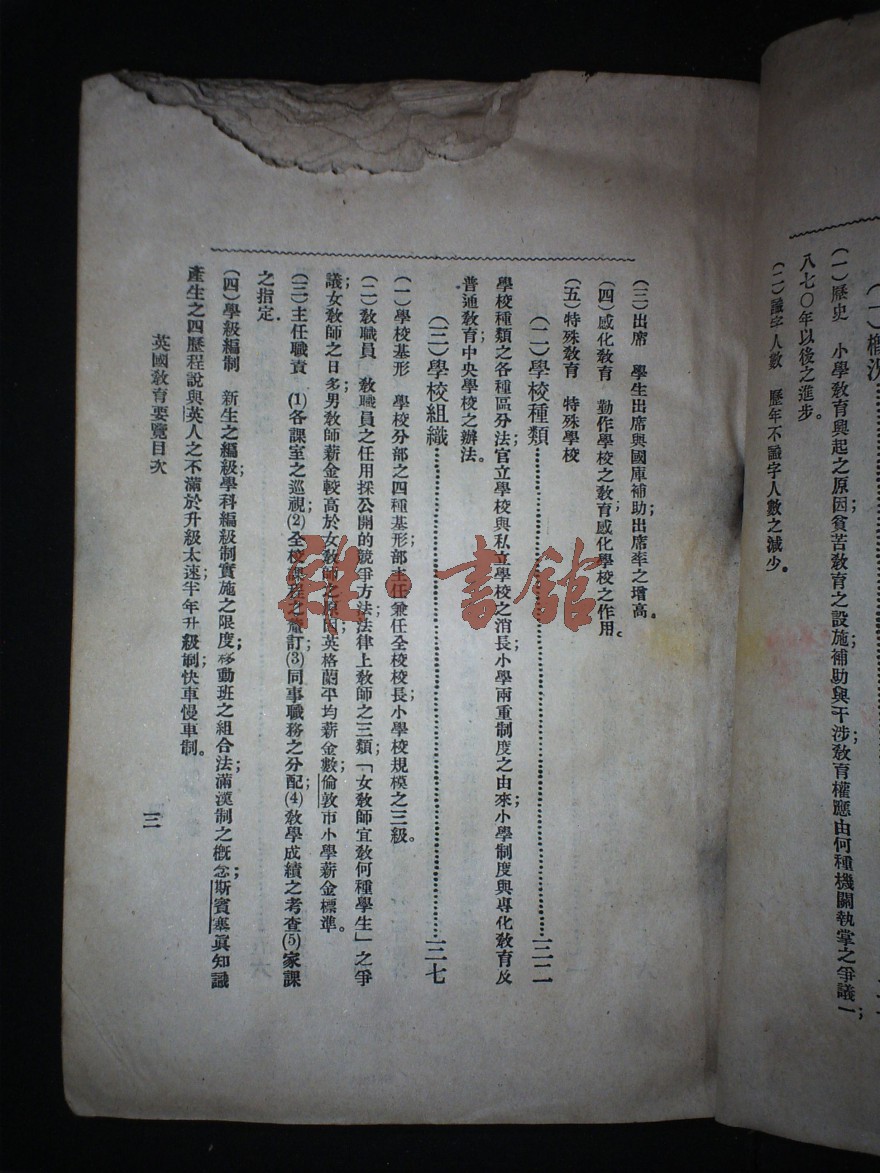 (一)概況
(一)歷史　小學教育興起之原因貧苦教育之設施補助與干涉教育權應由何種機關執掌之爭議;一
八七〇年以後之進步。
(二)識字人數　歷年不識字人數之減少。
(三)出席　學生出席與國庫補助;出席率之增高。
(四)感化教育　勤作學校之教育;感化學校之作用。
(五)特殊教育　特殊學校
(二)學校種類……三二
學校種類之各種區分法官立學校與私立學校之消長;小學兩重制度之由來;小學制度與專化教育反
普通教育;中央學校之辦法。
(三)學校組織……三七
(一)學校基形　學校分部之四種基形;部主任兼任全校校長;小學校規模之三級。
(二)教職員　教職員之任用採公開的競爭方法;法律上教師之三類;「女教師宜教何種學生」之爭
議;女教師之日多;男教師薪金較高於女教師之原因;英格蘭平均薪金數;倫敦市小學薪金標準。
(三)主任職責　(1)各課室之巡視;(2)全校課程之釐訂;(3)同事職務之分配;(4)教學成績之考查(5)家課
之指定.
(四)學級編制　新生之編級;學科編級制實施之限度;移動班之組合法;滿漢制之概念;斯賓塞眞知識
產生之四歷程說與英人之不滿於升級太速;半年升級制;快車慢車制。
英國教育要覽目次
三
雜·書館